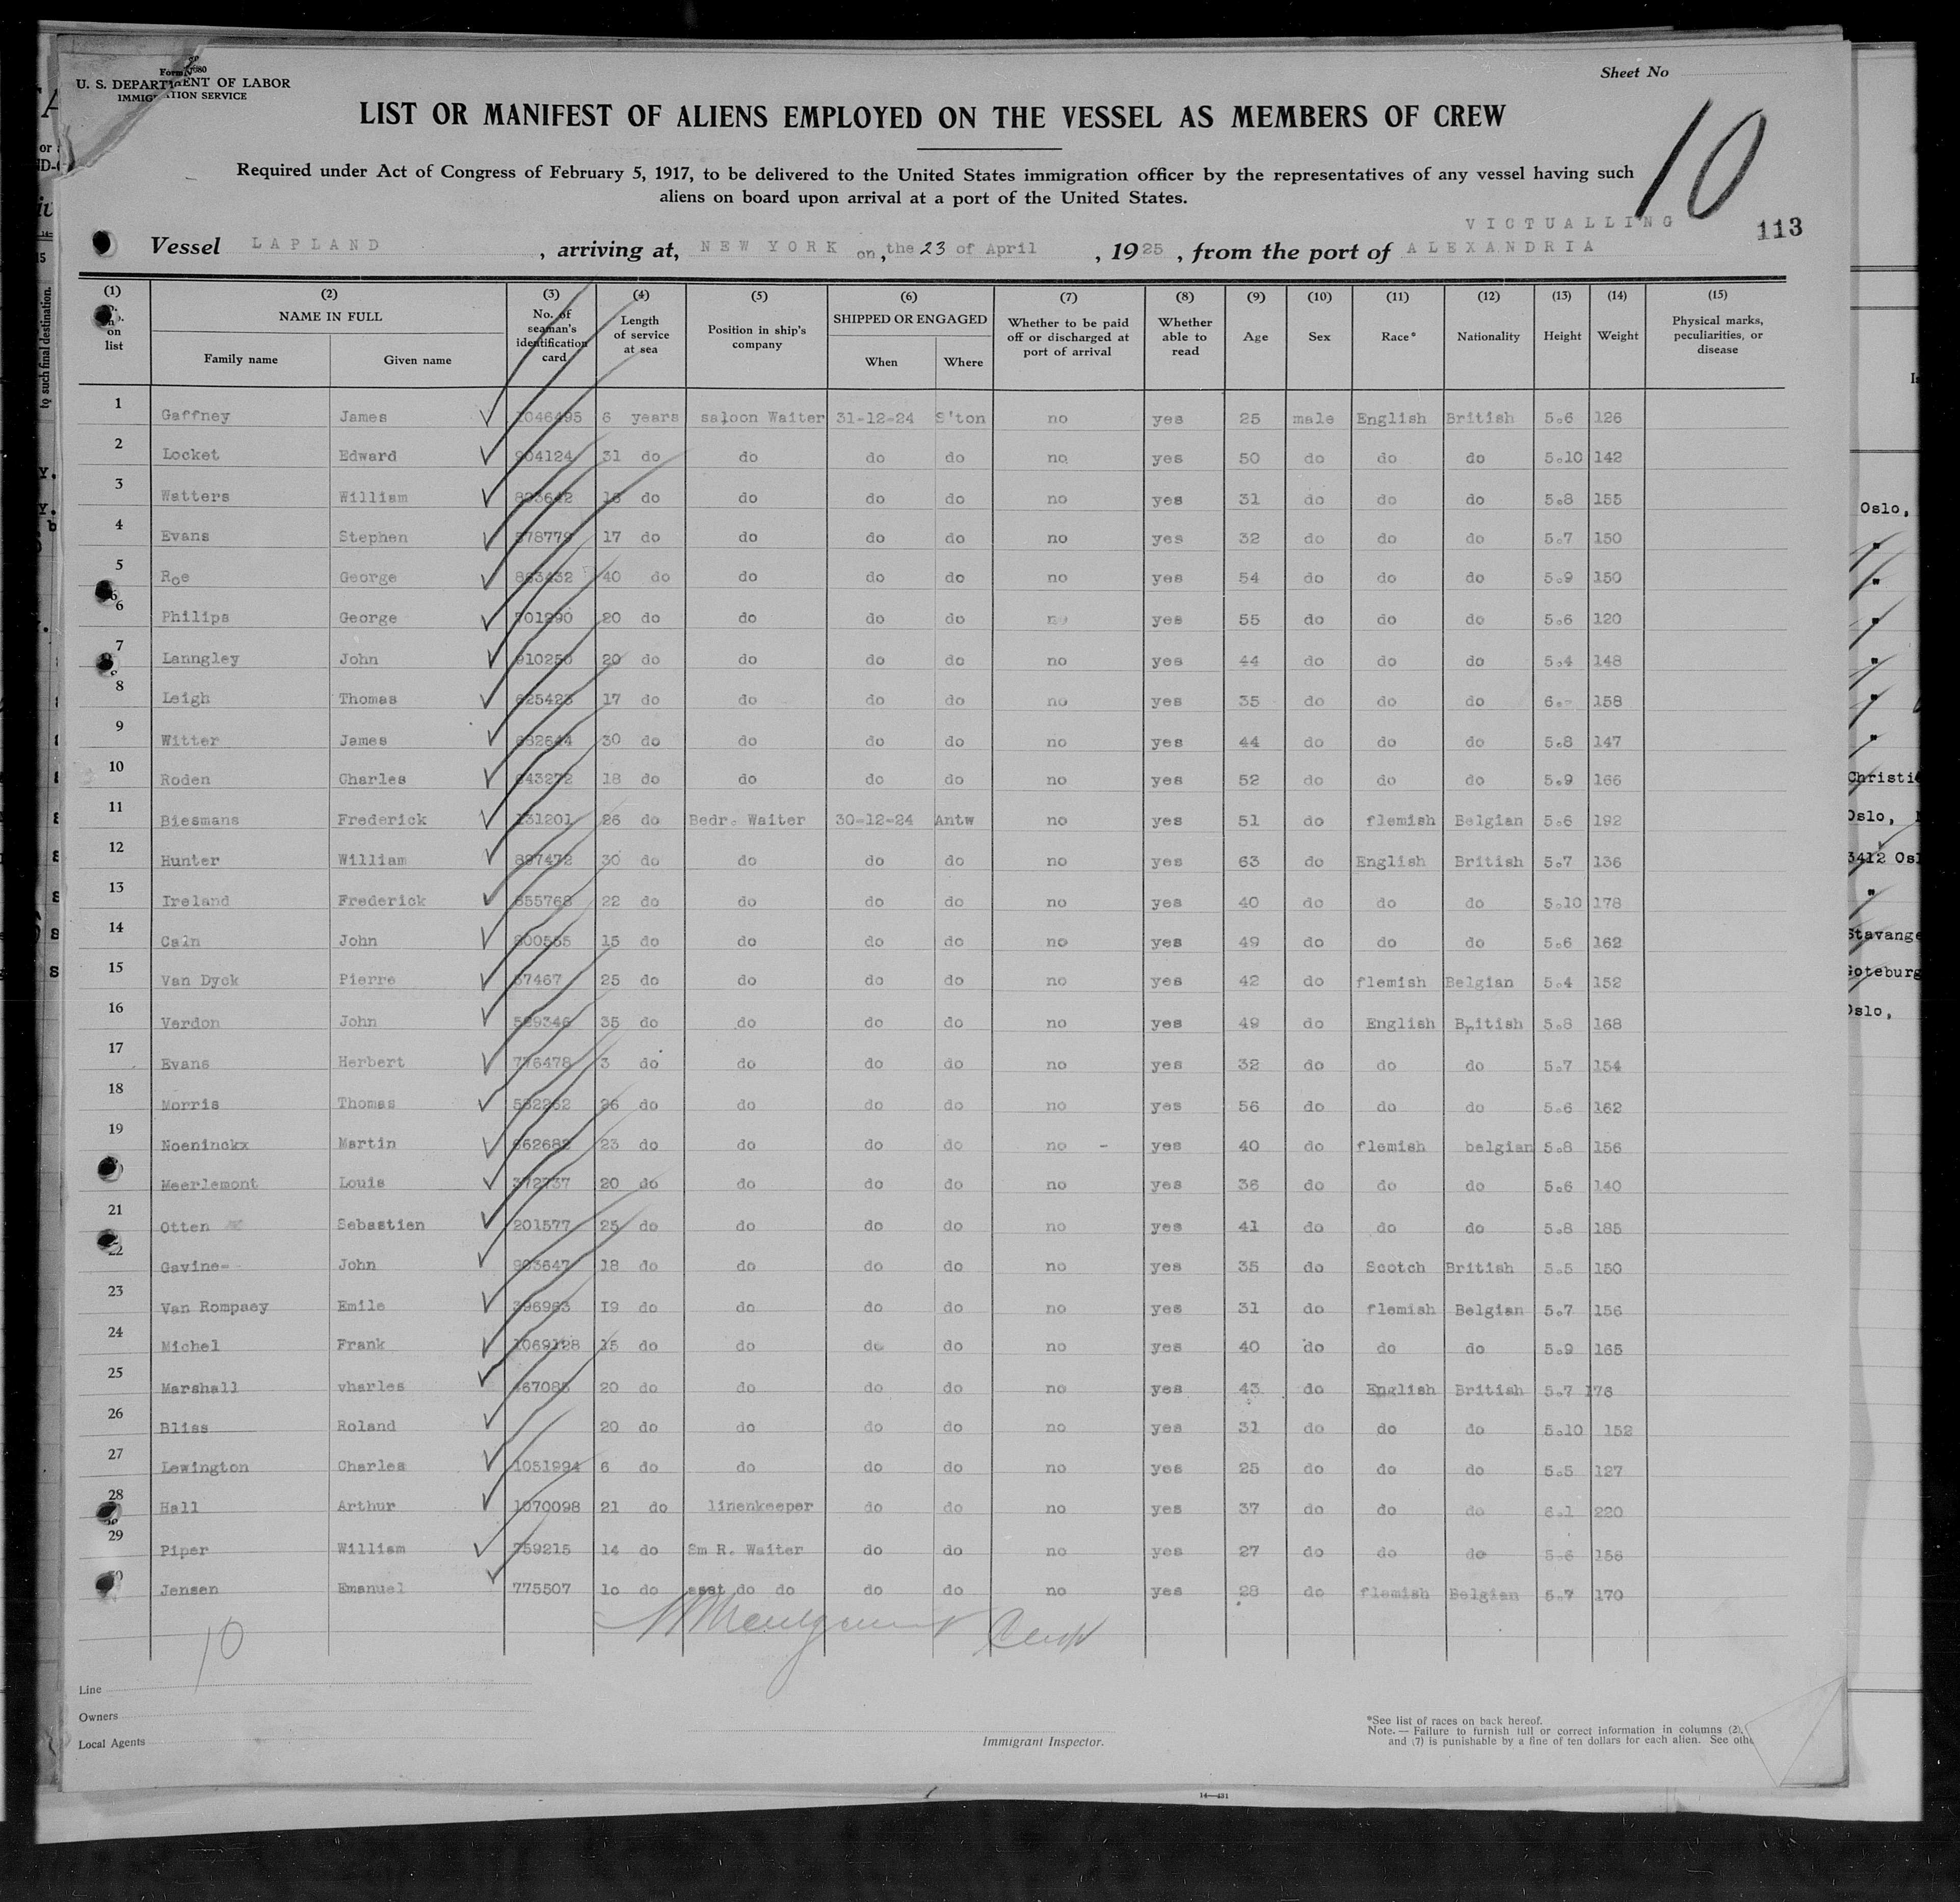 Sheet No
U. S. DEPARTMENT OF LABOR
IMMIGRATION SERVICE
LIST OR MANIFEST OF ALIENS EMPLOYED ON THE VESSEL AS MEMBERS OF CREW
10
Required under Act of Congress of February 5, 1917, to be delivered to the United States immigration officer by the representatives of any vessel having such
aliens on board upon arrival at a port of the United States.
VICTUALLING
113
Vessel LAPLAND , arriving at, NEW YORK on, the 23 of April , 1925 , from the port of ALEXANDRIA
(1) (2) (3) (4) (5) (6) (7) (8) (9) (10) (11) (12) (13) (14) (15)
on list NAME IN FULL Family name Given name No. of seaman's identification card Length of service at sea Position in ship's company SHIPPED OR ENGAGED When Where Whether to be paid off or discharged at port of arrival Whether able to read Age Sex Race* Nationality Height Weight Physical marks, peculiarities, or disease
1 Gaffney James 1046495 6 years saloon Waiter 31-12-24 S'ton no yes 25 male English British 5.6 126
2 Locket Edward 904124 31 do do do do no yes 50 do do do 5.10 142
3 Watters William 16 do do do do no yes 31 do do do 5.8 155
4 Evans Stephen 17 do do do do no yes 32 do do do 5.7 150
5 Roe George 863432 40 do do do do no yes 54 do do do 5.9 150
6 Philips George 20 do do do do no yes 55 do do do 5.6 120
7 Lanngley John 910250 20 do do do do no yes 44 do do do 5.4 148
8 Leigh Thomas 625423 17 do do do do no yes 35 do do do 6.- 158
9 Witter James 30 do do do do no yes 44 do do do 5.8 147
10 Roden Charles 18 do do do do no yes 52 do do do 5.9 166
11 Biesmans Frederick 131201 26 do Bedr. Waiter 30-12-24 Antw no yes 51 do flemish Belgian 5.6 192
12 Hunter William 897472 30 do do do do no yes 63 do English British 5.7 136
13 Ireland Frederick 22 do do do do no yes 40 do do do 5.10 178
14 Caln John 15 do do do do no yes 49 do do do 5.6 162
15 Van Dyck Pierre 57467 25 do do do do no yes 42 do flemish Belgian 5.4 152
16 Verdon John 35 do do do do no yes 49 do English British 5.8 168
17 Evans Herbert 776478 3 do do do do no yes 32 do do do 5.7 154
18 Morris Thomas 26 do do do do no yes 56 do do do 5.6 162
19 Noeninckx Martin 662682 23 do do do do no - yes 40 do flemish belgian 5.8 156
Meerlemont Louis 372737 20 do do do do no yes 36 do do do 5.6 140
21 Otten Sebastien 201577 25 do do do do no yes 41 do do do 5.8 185
22 Gavine- John 903647 18 do do do do no yes 35 do Scotch British 5.5 150
23 Van Rompaey Emile 396963 19 do do do do no yes 31 do flemish Belgian 5.7 156
24 Michel Frank 1069128 15 do do do do no yes 40 do do do 5.9 165
25 Marshall vharles 20 do do do do no yes 43 do English British 5.7 176
26 Bliss Roland 20 do do do do no yes 31 do do do 5.10 152
27 Lewington Charles 1051994 6 do do do do no yes 25 do do do 5.5 127
28 Hall Arthur 1070098 21 do linenkeeper do do no yes 37 do do do 6.1 220
29 Piper William 759215 14 do Sm R. Waiter do do no yes 27 do do do 5.6 156
Jensen Emanuel 775507 lo do asst do do do do no yes 28 do flemish Belgian 5.7 170
10
Line
Owners
Local Agents
Immigrant Inspector.
*See list of races on back hereof.
Note. — Failure to furnish full or correct information in columns (2),
and (7) is punishable by a fine of ten dollars for each alien. See
14—431
Oslo,
Oslo,
3412
Oslo,